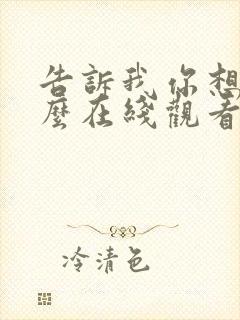 告訴我你想
麼在綫觀看
冷清色